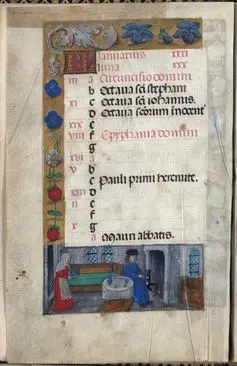 Januarius xxxi
luna xxx
iii a Circuncisio domini
b Octava sci stephani
xi c Octava sci iohannis.
d Octava scorum innocent
xix e
viii f Epyphania domini
g
xvi a
v b
c
d Pauli primi heremite.
e
f
g
x a Mauri abbatis.